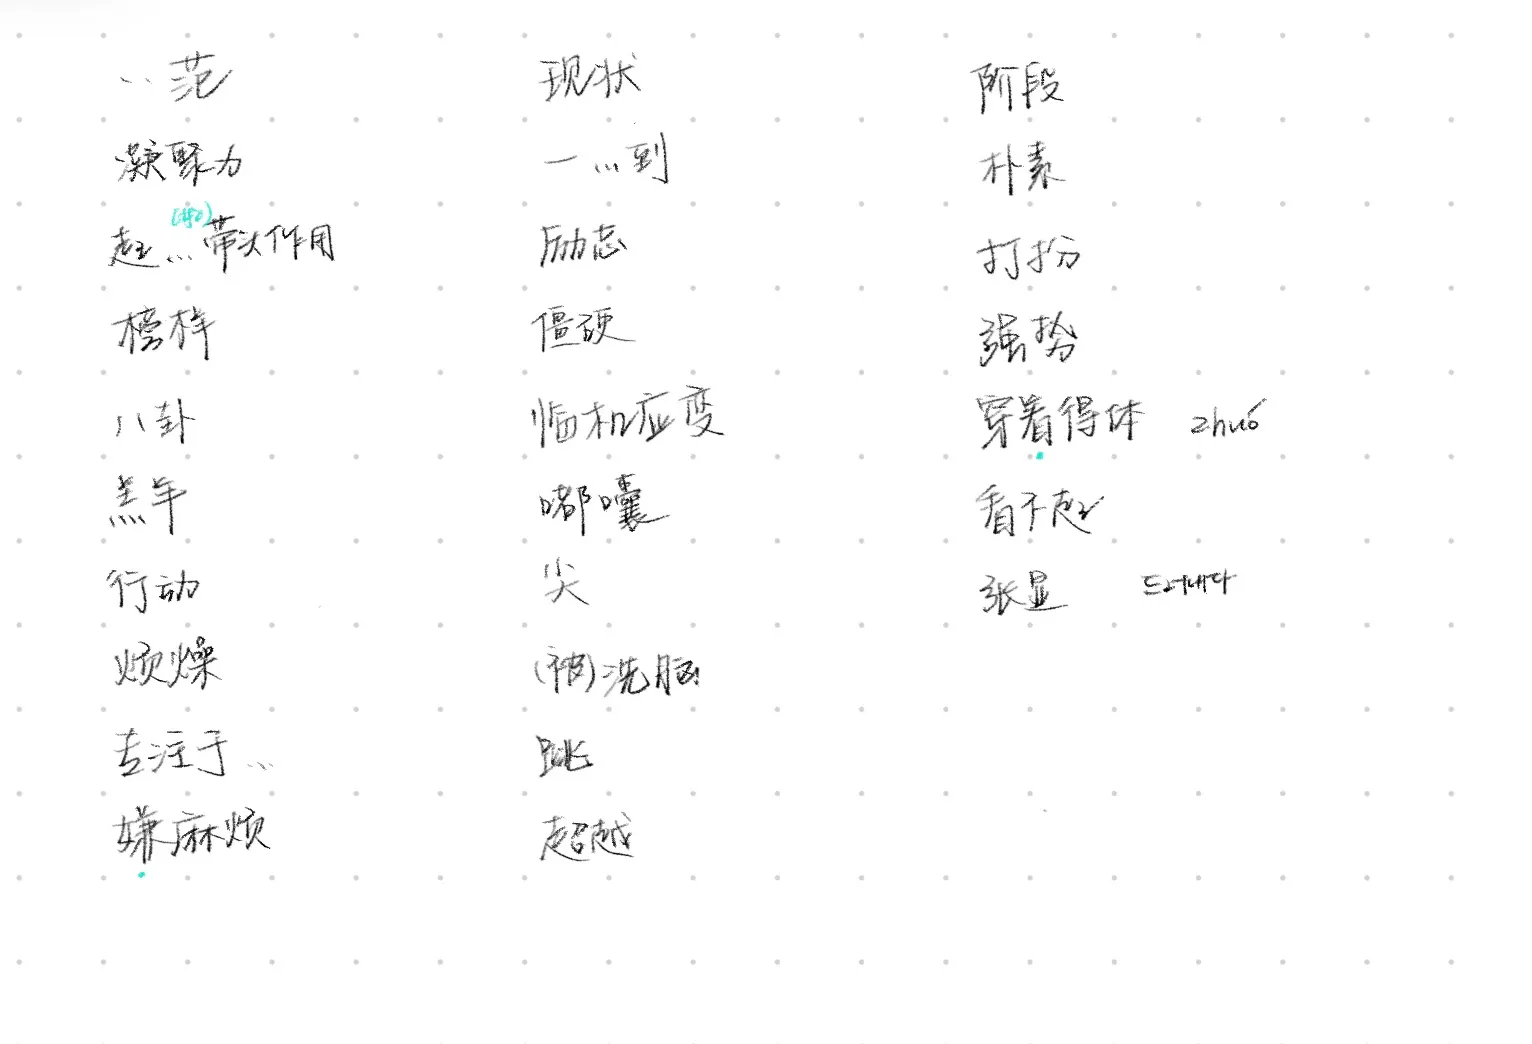 …范
凝聚力
起…(好)带头作用
榜样
八卦
羔羊
行动
烦燥
专注于…
嫌麻烦
现状
一…到
励志
僵硬
临机应变
嘟囔
尖
(被)洗脑
跳
超越
阶段
朴素
打扮
强势
穿着得体 zhuó
看不起
张显 드러내다